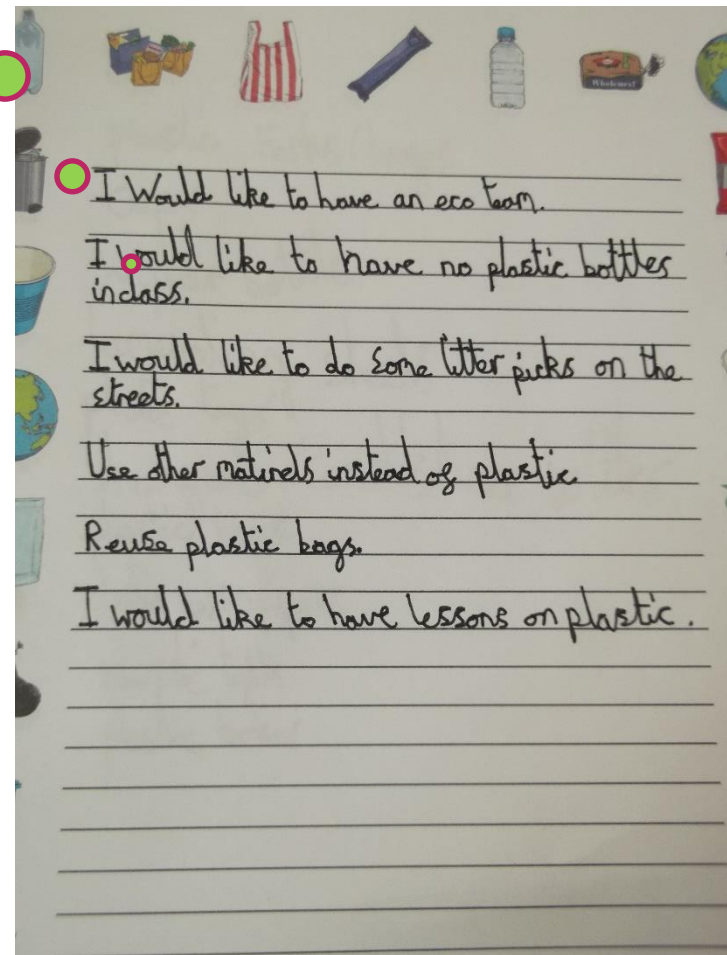 Wholewheat
I Would like to have an eco team.
I would like to have no plastic bottles
in class.
I would like to do some litter picks on the
streets.
Use other matirels instead of plastic
Reuse plastic bags.
I would like to have lessons on plastic.